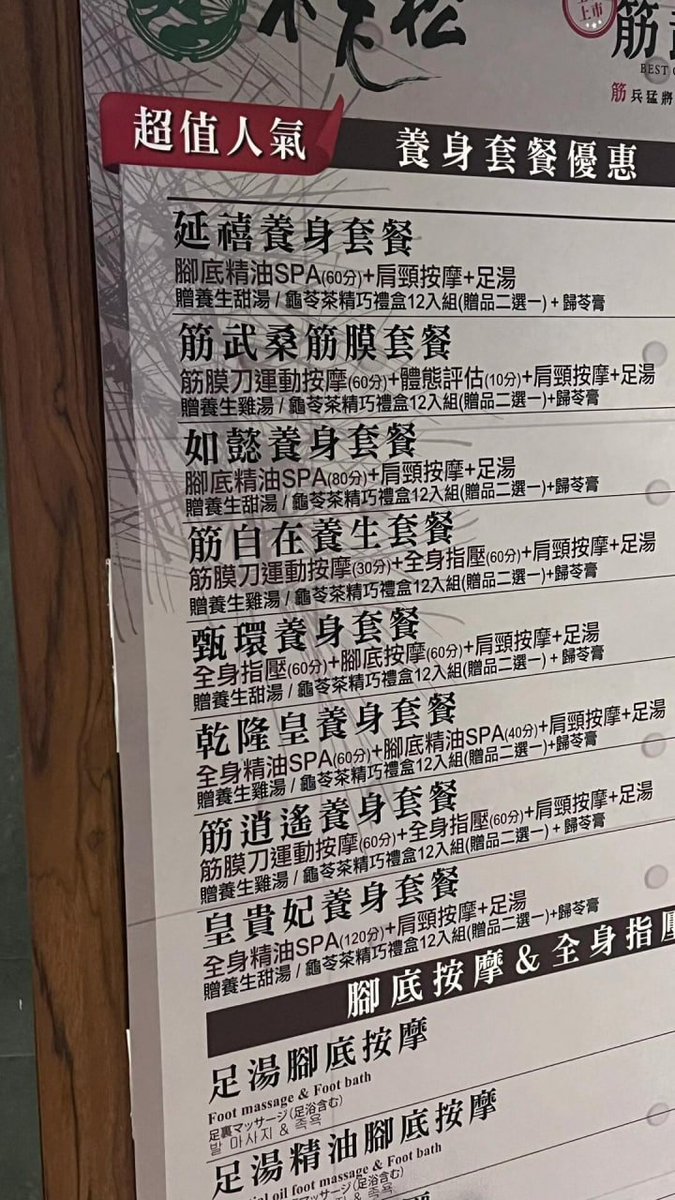 不老松
上市
筋武
BEST
筋 兵猛將
超值人氣
養身套餐優惠
延禧養身套餐
腳底精油SPA(60分)+肩頸按摩+足湯
贈養生甜湯 / 龜苓茶精巧禮盒12入組(贈品二選一) + 歸苓膏
筋武桑筋膜套餐
筋膜刀運動按摩(60分)+體態評估(10分)+肩頸按摩+足湯
贈養生雞湯 / 龜苓茶精巧禮盒12入組(贈品二選一)+歸苓膏
如懿養身套餐
腳底精油SPA(80分)+肩頸按摩+足湯
贈養生甜湯 / 龜苓茶精巧禮盒12入組(贈品二選一)+歸苓膏
筋自在養生套餐
筋膜刀運動按摩(30分)+全身指壓(60分)+肩頸按摩+足湯
贈養生雞湯 / 龜苓茶精巧禮盒12入組(贈品二選一)+歸苓膏
甄環養身套餐
全身指壓(60分)+腳底按摩(60分)+肩頸按摩+足湯
贈養生甜湯 / 龜苓茶精巧禮盒12入組(贈品二選一) + 歸苓膏
乾隆皇養身套餐
全身精油SPA(60分)+腳底精油SPA(40分)+肩頸按摩+足湯
贈養生雞湯 / 龜苓茶精巧禮盒12入組(贈品二選一)+歸苓膏
筋逍遙養身套餐
筋膜刀運動按摩(60分)+全身指壓(60分)+肩頸按摩+足湯
贈養生雞湯 / 龜苓茶精巧禮盒12入組(贈品二選一) + 歸苓膏
皇貴妃養身套餐
全身精油SPA(120分)+肩頸按摩+足湯
贈養生甜湯 / 龜苓茶精巧禮盒12入組(贈品二選一)+歸苓膏
腳底按摩&全身指壓
足湯腳底按摩
Foot massage & Foot bath
足裏マッサージ(足浴含む)
발 마사지 & 족욕
足湯精油腳底按摩
oil foot massage & Foot bath
マッサージ(足浴含む)
마사지 & 족욕